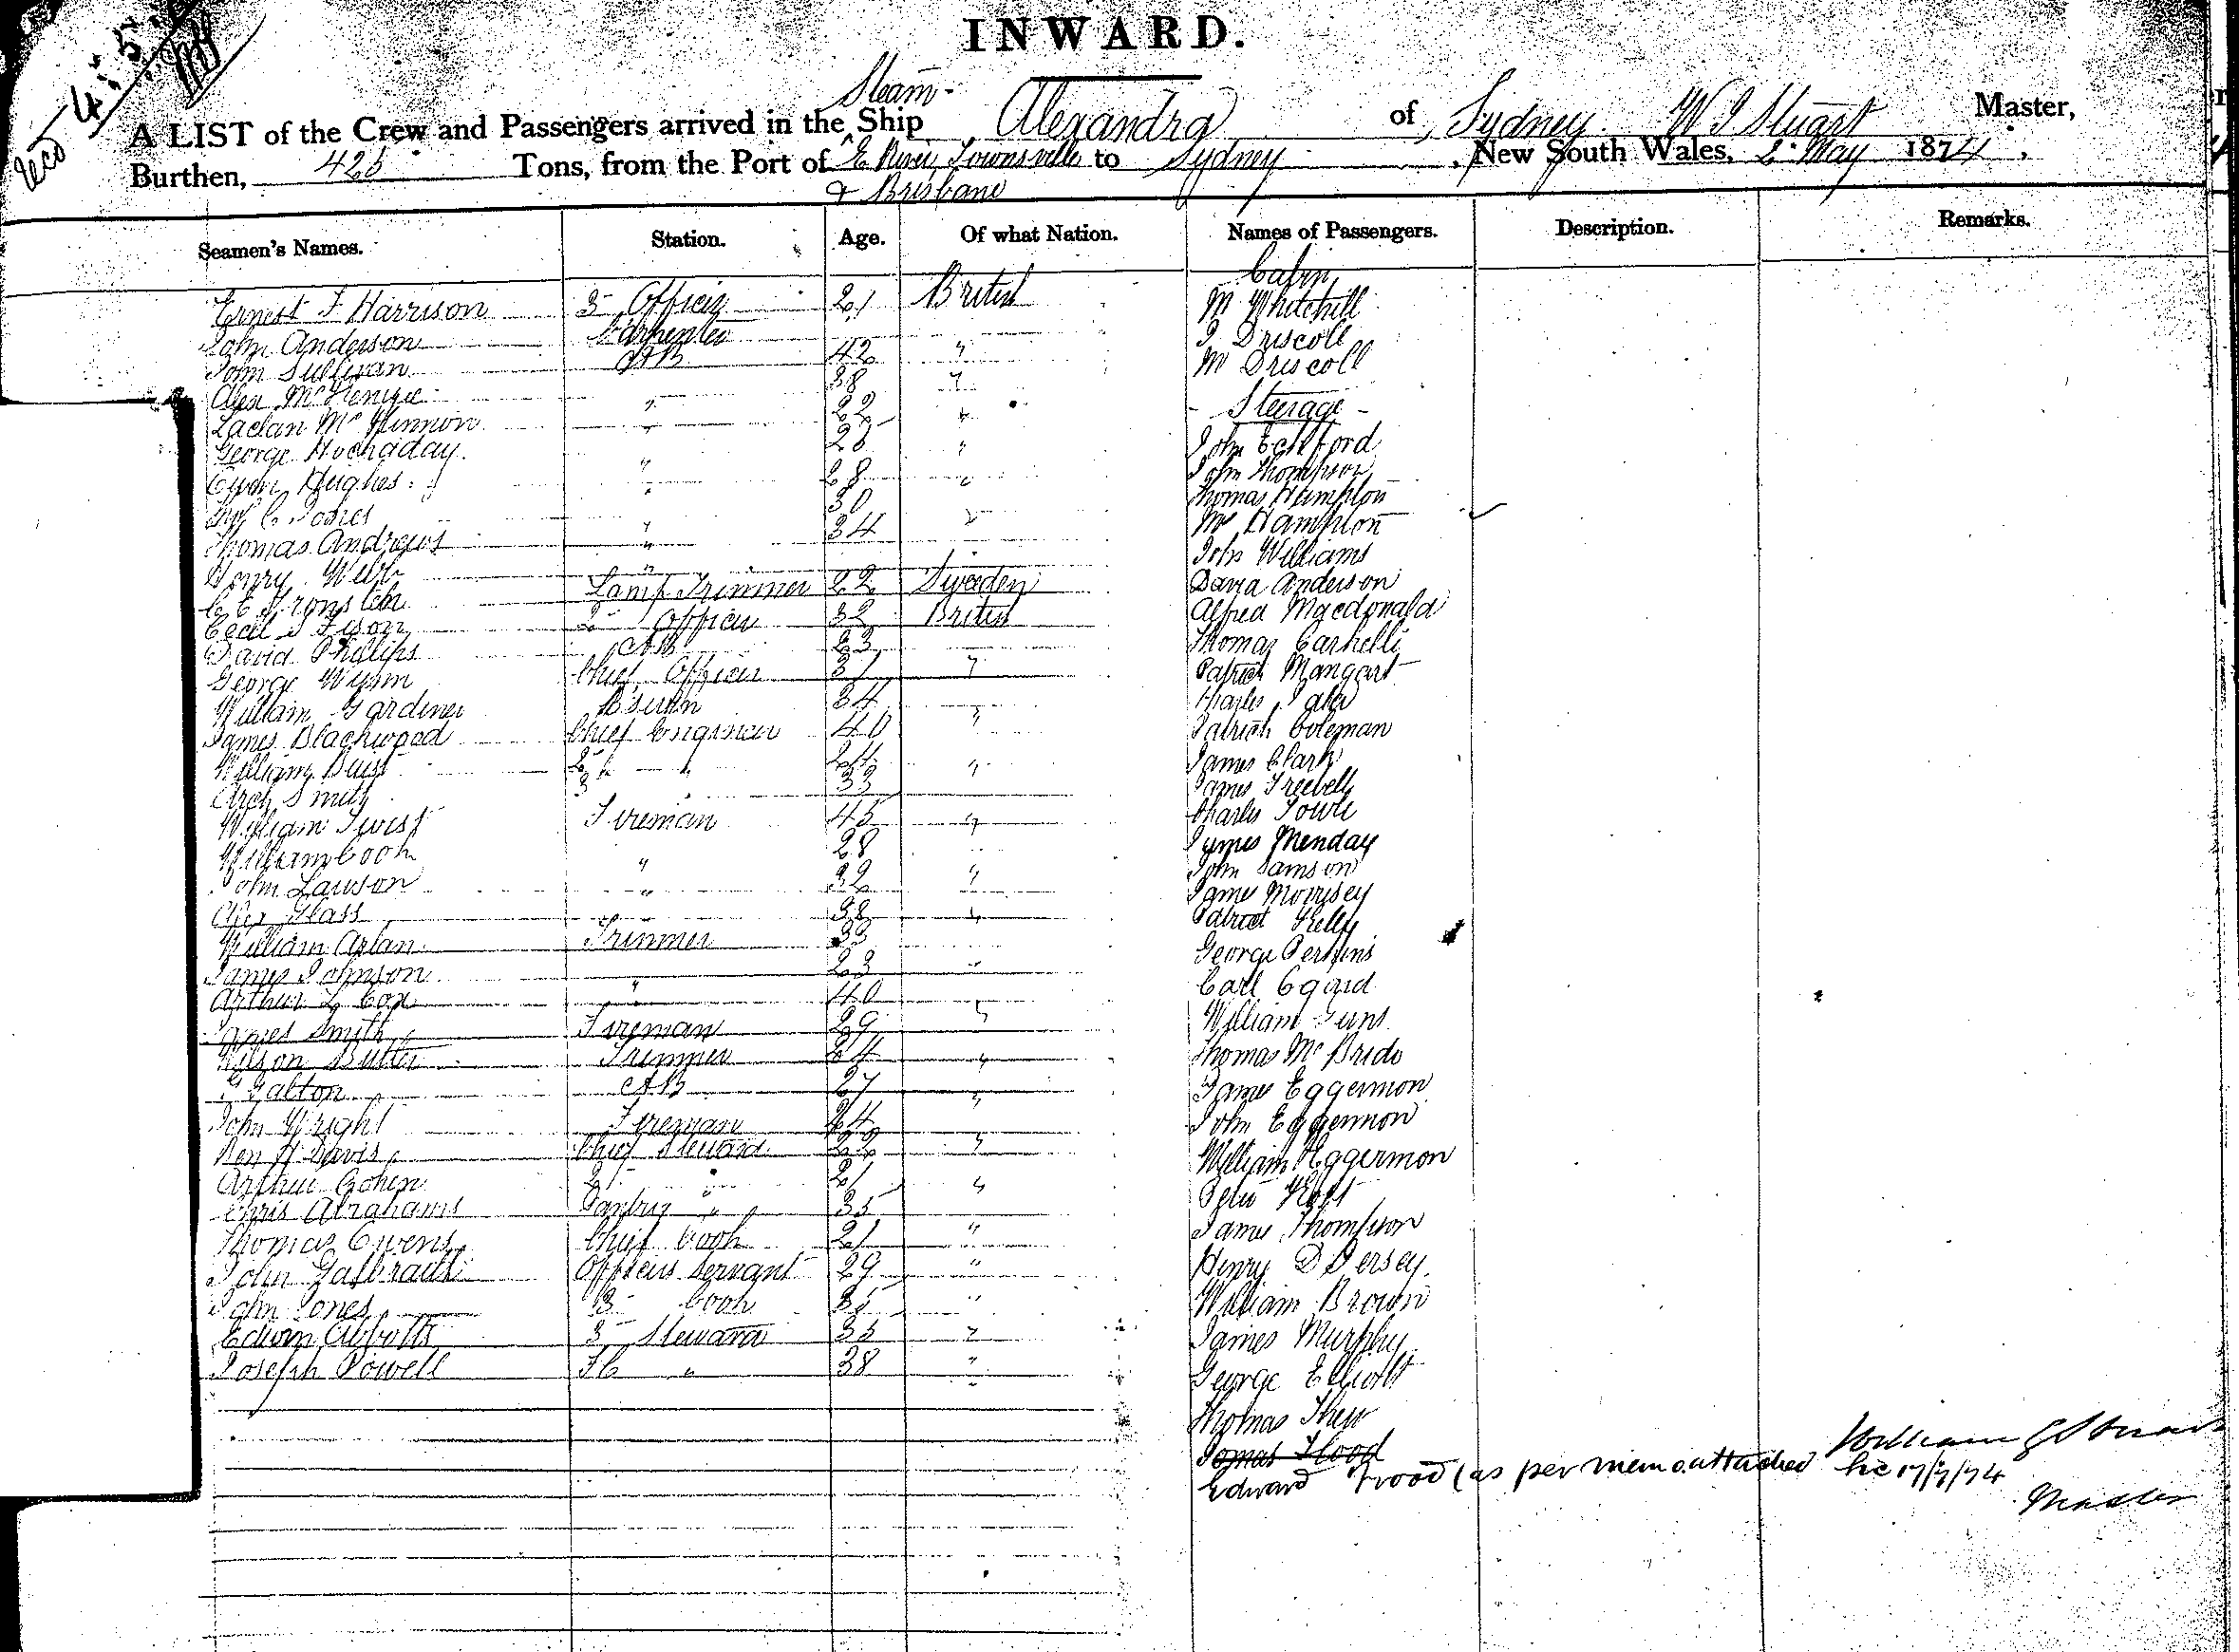 INWARD.
Steam-
A LIST of the Crew and Passengers arrived in the Ship Alexandra of Sydney W Stuart Master,
Burthen, 425 Tons, from the Port of E River, Townsville to Sydney, New South Wales, 2 May 1874.
& Brisbane
Seamen's Names. Station. Age. Of what Nation. Names of Passengers. Description. Remarks.
Cabin
Ernest F Harrison 3 Officer 21 British M Whitehill
John Anderson Carpenter J Driscoll
John Sullivan AB 42 " M Driscoll
Alex 38 "
Laclan McKinnon " 22 " Steerage
George Hockaday " 28 " John Eckford
Owen Hughes " 28 " John Thompson
C Jones " 30 Thomas Hampton
Thomas Andrews " 34 " Mrs Hampton
Henry Webb " John Williams
C E Lamp Trimmer 22 Sweden David Anderson
Cecil 2 Officer 32 British Alfred Macdonald
David Philips AB 23 Thomas
George Chief Officer 31 " Patrick
William Gardiner 34 Charles
James Blackwood Chief Engineer 40 " Patrick Coleman
William 2 " 24 " James Clark
Arch Smith 3 33 James
William Twist Fireman 45 " Charles
William Cook " 28 James Menday
John Lawson " 32 " John Samson
Alex Glass 38 " James Morrisey
William Trimmer 33 Patrick Kelly
James Johnson 23 " George Perkins
Arthur L Cox " 40 Carl
James Smith Fireman 29 " William
Wilson Butler Trimmer 24 " Thomas McBride
Galton AB 27 " James Eggermon
John Wright Fireman 24 John Eggermon
Ben H Davis Chief Steward 22 " William Eggermon
Arthur Cohen 2 " 21 " Peter
Chris Abrahams Pantry " 35 James Thompson
Thomas Owens Chief Cook 21 " Henry D Dersey
John Galbraith Officers Servant 29 " William Brown
John Jones 3 Cook 35 " James Murphy
Edwin Abbotts 3 Steward 35 " George Elliott
Joseph Powell " 38 " Thomas
Flood
Edward Flood (as per memo. attached 17/7/74
William Stuart
Master